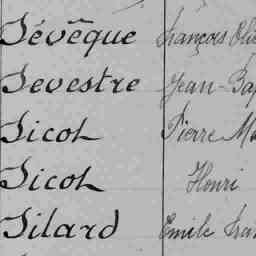 Sévêque François
Sevestre Jean-Bap
Sicot Pierre Ma
Sicot Henri
Silard Emile Fran